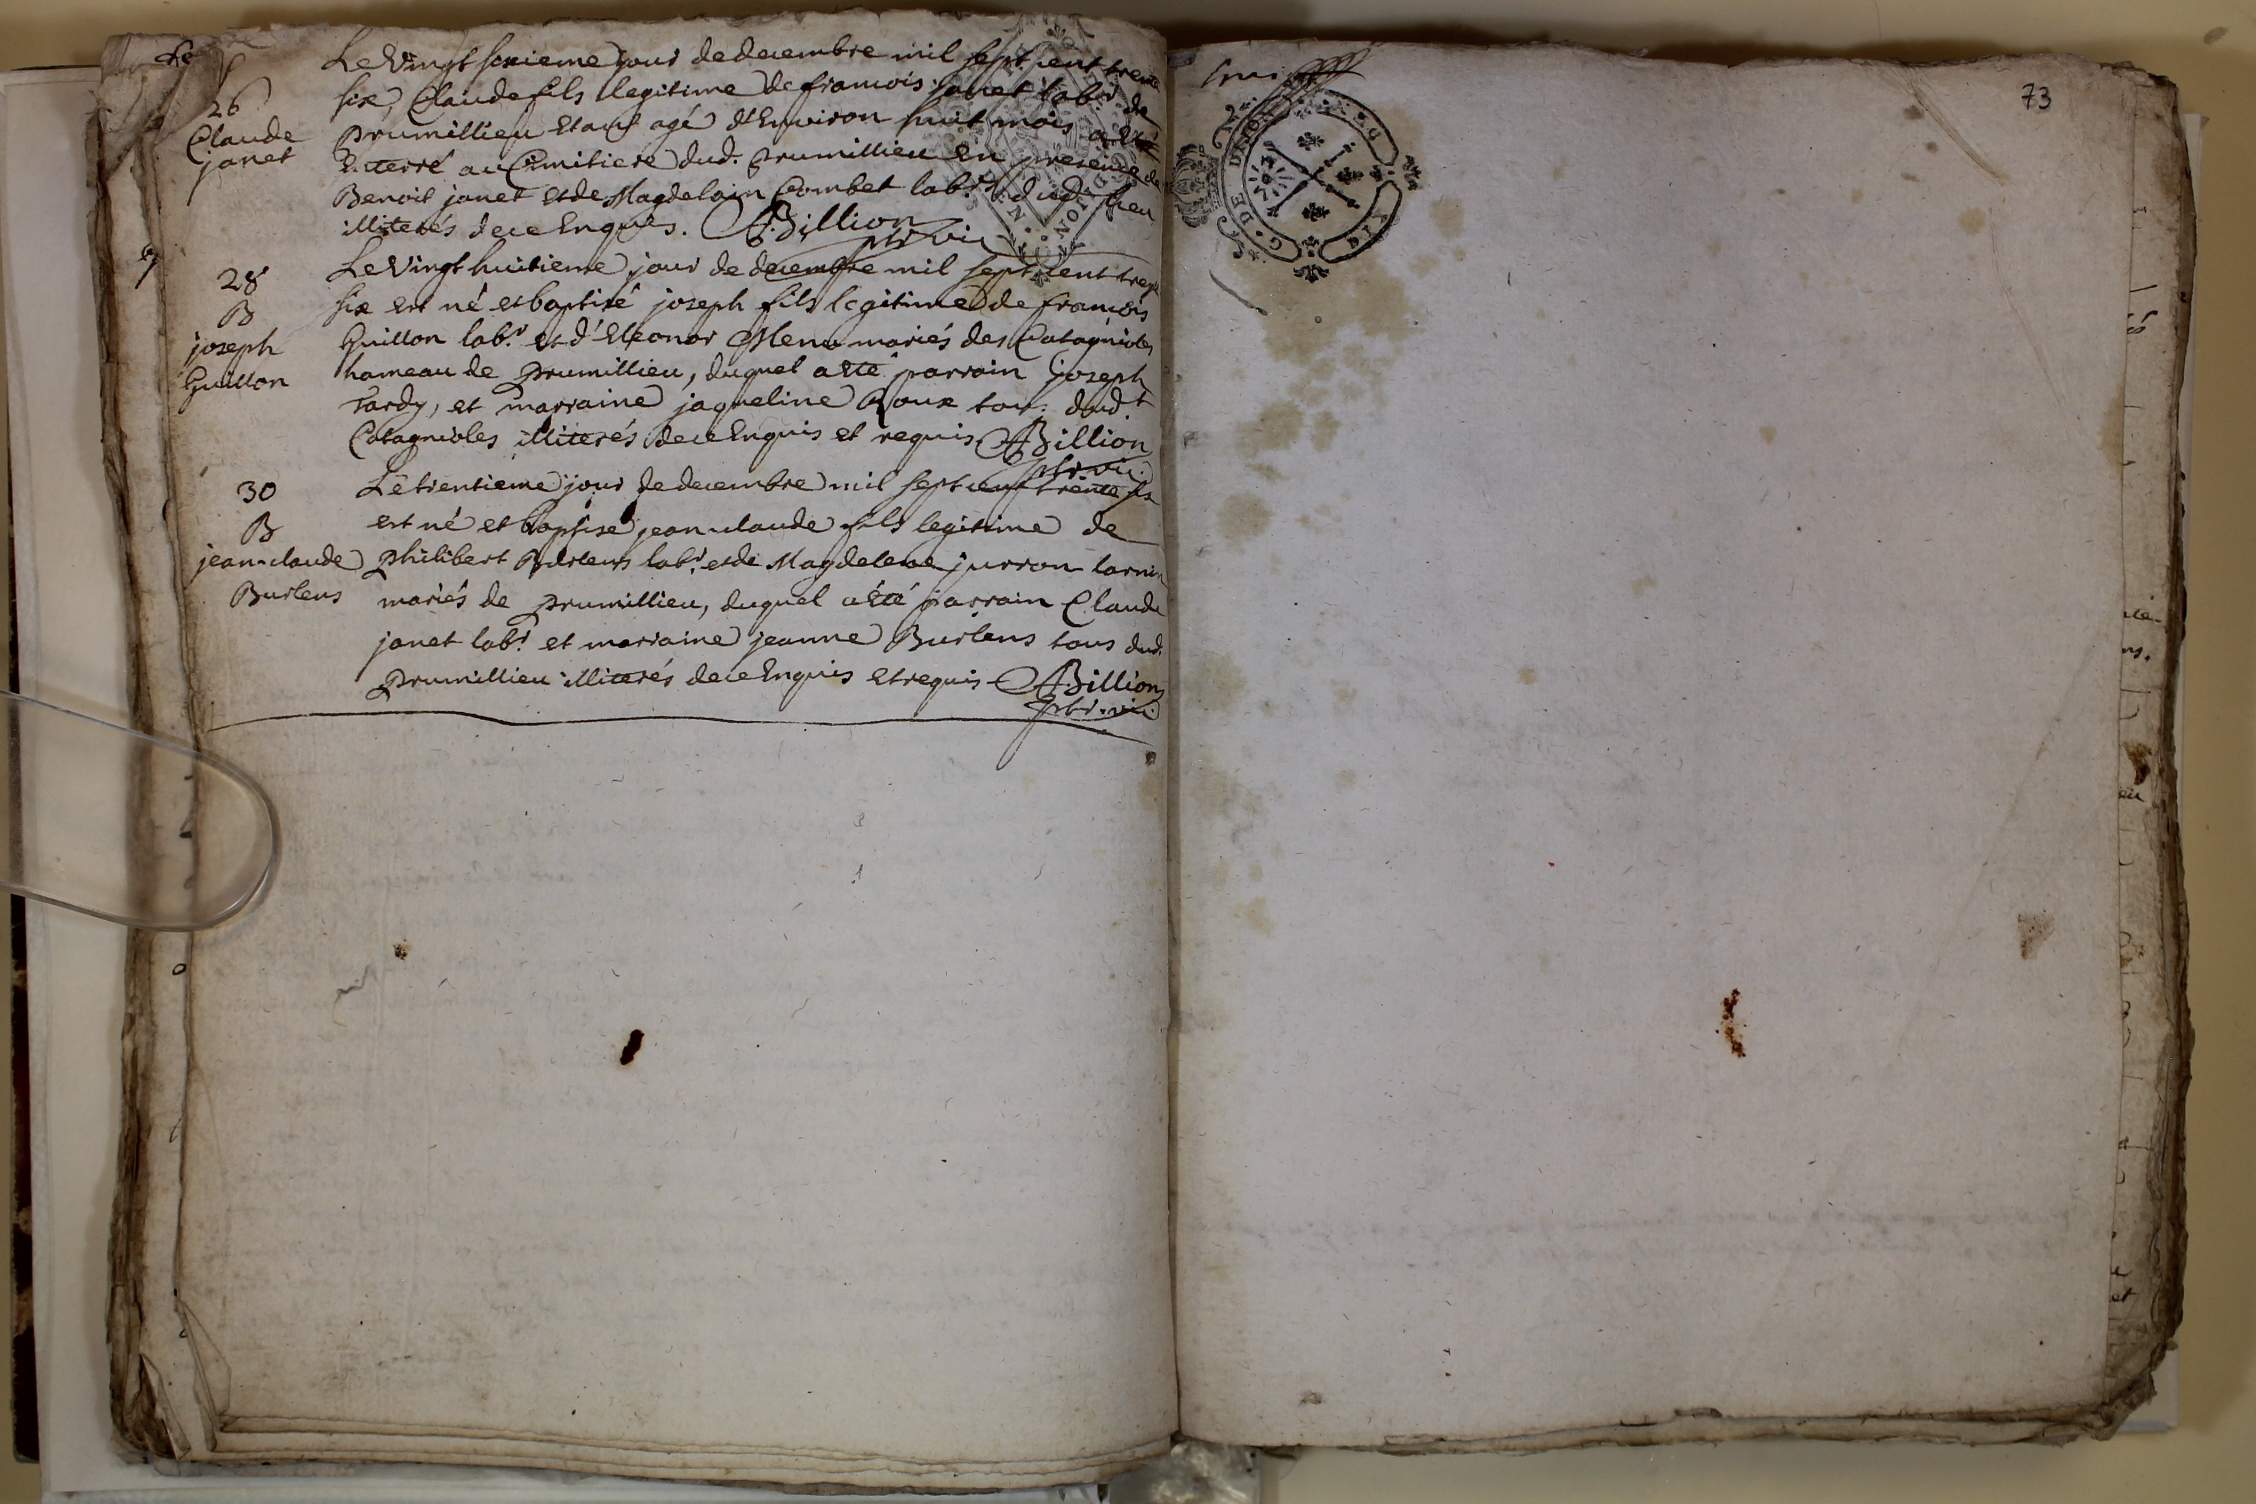 26
Claude
janet
Le Vingt sixieme jour de decembre mil sept cent trente
six, Claude fils legitime de francois janet lab.r de
prumillieu et agé d'Environ huit mois a Eté
Enterré au Cimitiere dud. prumillieu en presence de
Benoit janet et de Magdelain Combet lab.rs dud. lieu
illiterés de ce Enquis. Billion
ptr vic
28
B
joseph
Guillon
Le Vingt huitieme jour de decembre mil sept cent trente
six est né et baptisé joseph fils legitime de francois
Guillon lab.r et d'Eleonor mariés des Catagnioles
hameau de prumillieu, duquel a Eté parrain joseph
Tardy, et marraine jaqueline Roux tous dud.t
Catagnioles illiterés de ce Enquis et requis Billion
ptr. vic.
30
B
jean claude
Burlens
Le trentieme jour de decembre mil sept cent trente six
est né et baptisé jean claude fils legitime de
philibert Burlens lab.r et de Magdeleine jurron
mariés de prumillieu, duquel a Eté parrain Claude
janet lab.r et marraine jeanne Burlens tous dud.
prumillieu illiterés de ce Enquis et requis Billion
ptr. vic.
73
G. DE DIJON